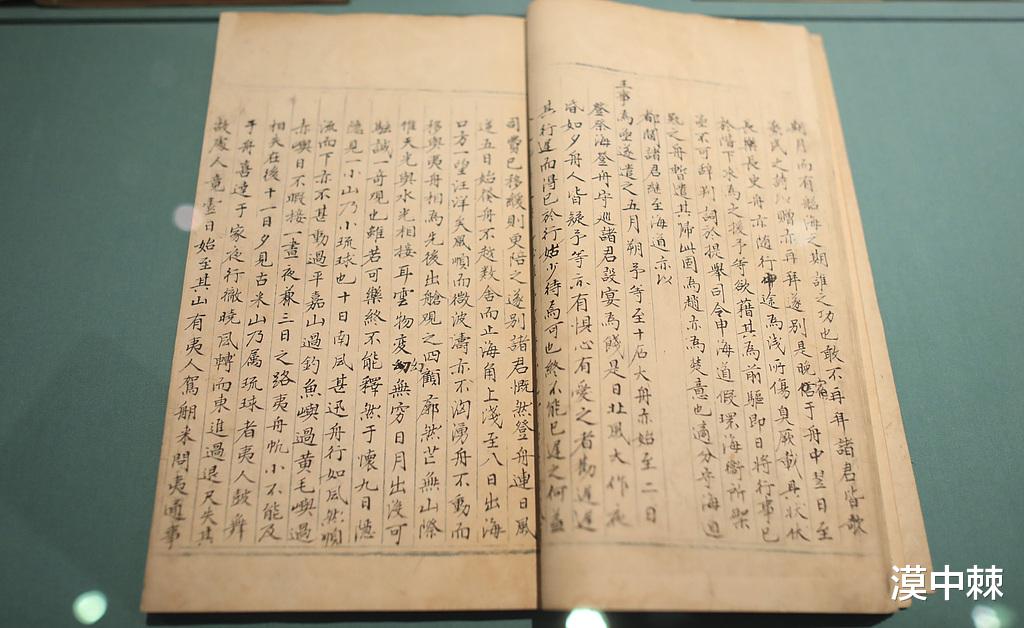 期月而有航海之期誰之功也敢不再拜諸君皆歌
烝民之詩以贈亦再拜遂別是晚宿于舟中翌日至
長樂長史舟亦隨行中途為淺所傷臭厥載具狀伏
於階下求為之援予等欲藉其為前驅即日將行事已
亟不可辭判詞於提舉司令申海道假環海衛所架
之舟偕遣其歸此固為趙亦為裝意也適分守海道
都閫諸君繼至海道亦以
王事為亟遂遣之五月朔予等至十石大舟亦始至二日
祭海登舟守巡諸君設宴為餞是日北風大作夜
昏如夕舟人皆疑予等亦有懼心有愛之者勸遲遲
其行遲而得已於行姑少待焉可也終不能已遲之何益
司費已移緩則更陪之遂別諸君慨然登舟連日風
逆五日始發舟不越數舍而止海角上淺至八日出海
口方一望汪洋矣風順而微波濤亦不洶湧舟不動而
移與夷舟相為先後出艙觀之四顧廓然茫無山際
惟天光與水光相接耳雲物變幻無窮日月出沒可
駭誠一奇觀也雖若可樂終不能釋然于懷九日隱
隱見一小山乃小琉球也十日南風甚迅舟行如風然順
流而下亦不甚動過平嘉山過釣魚嶼過黃毛嶼過
赤嶼目不暇接一晝夜兼三日之路夷舟帆小不能及
相失在後十一日夕見古米山乃屬琉球者夷人鼓舞
于舟喜達于家夜行徹曉風轉而東進過退尺失其
故處人竟日始至其山有夷人駕船來問夷通事
漠中棘